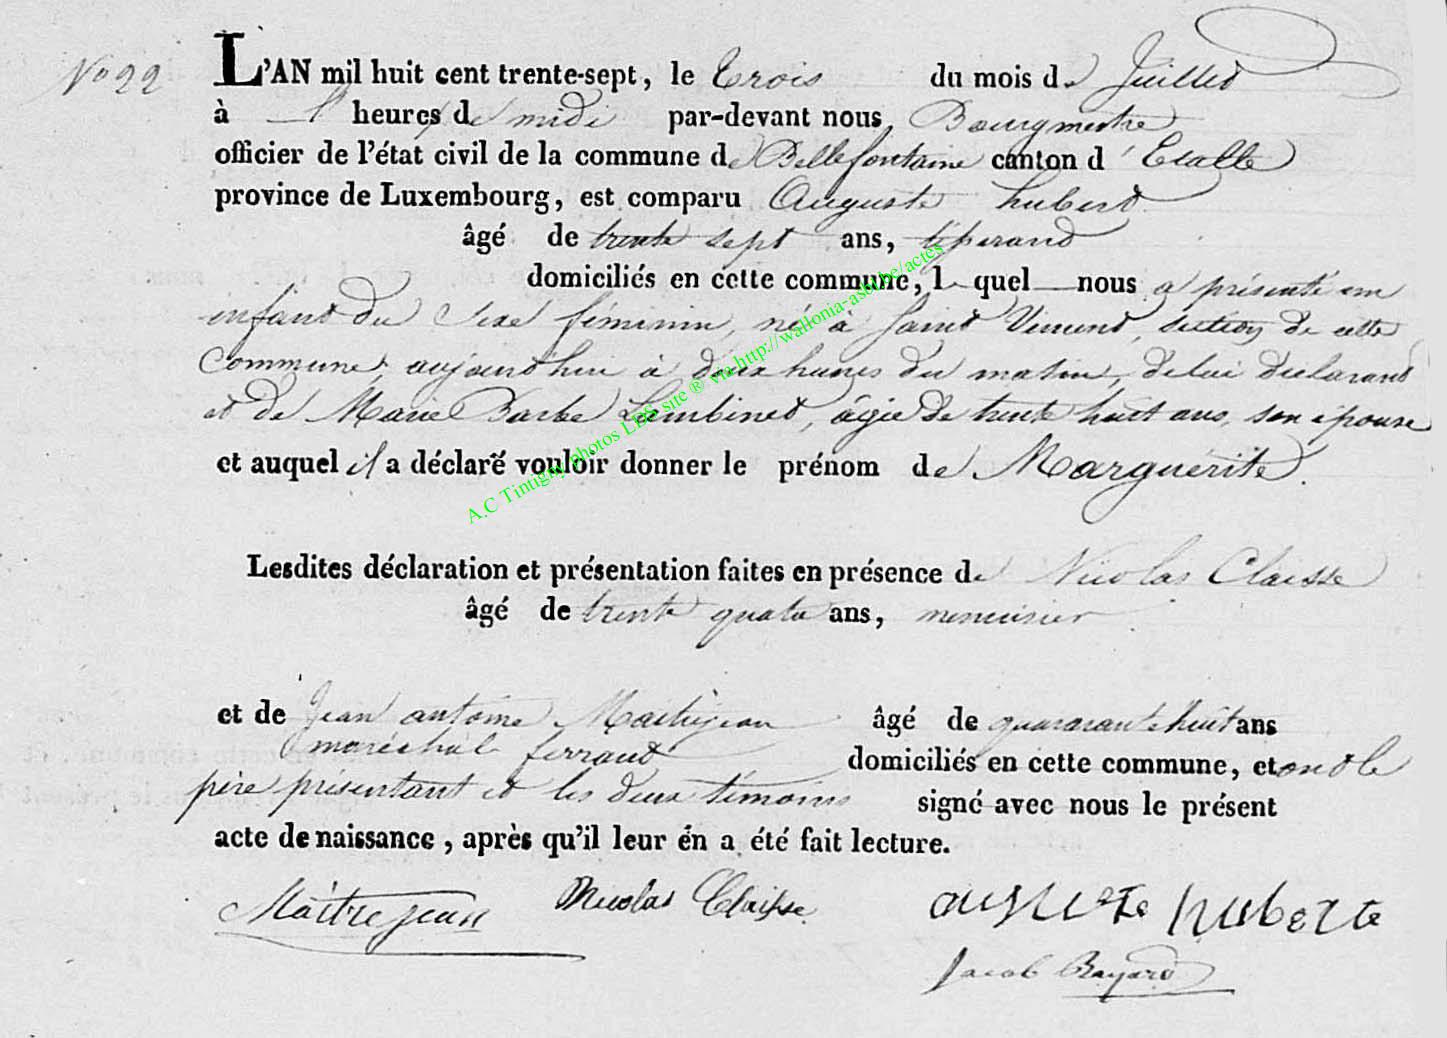 No 22
L'AN mil huit cent trente-sept, le Trois du mois de Juillet
à heures de midi par-devant nous Bourgmestre
officier de l'état civil de la commune de Bellefontaine canton d'Etalle
province de Luxembourg, est comparu Auguste hubert
âgé de trente sept ans,
domiciliés en cette commune, le quel nous a présenté un
enfant du Sexe féminin, né à Saint Vincent, section de cette
Commune, aujourd'hui à deux heures du matin, de lui déclarant
et de Marie Barbe Lambinet, âgée de trente huit ans, son épouse
et auquel il a déclaré vouloir donner le prénom de Marguerite.
Lesdites déclaration et présentation faites en présence de Nicolas Claisse
âgé de trente quatre ans, menuisier
et de Jean antoine Maitrejean âgé de quararante huit ans
maréchal ferrant domiciliés en cette commune, et ont le
père présentant et les deux témoins signé avec nous le présent
acte de naissance, après qu'il leur en a été fait lecture.
Maîtrejean Nicolas Claisse auguste huberte
Jacob Bayard
A.C Tintigny photos LDS site ® via http://wallonia-asbl.be/actes